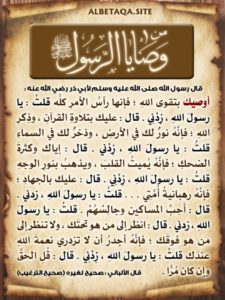 ALBETAQA.SITE
من
وصايا الرسول ﷺ
قال رسول الله صلى الله عليه وسلم لأبي ذر رضي الله عنه :
أوصيك بتقوى الله ؛ فإنها رأس الأمر كله قلت : يا
رسول الله ، زدني . قال : عليك بتلاوة القرآن ، وذكر
الله ؛ فإنه نور لك في الأرض ، وذخر لك في السماء
قلت : يا رسول الله ، زدني . قال : إياك وكثرة
الضحك ؛ فإنه يميت القلب ، ويذهب بنور الوجه
قلت : يا رسول الله ، زدني . قال : عليك بالجهاد ؛
فإنه رهبانية أمتي . . . قلت : يا رسول الله ، زدني .
قال : أحب المساكين وجالسهم . قلت : يا رسول
الله ، زدني . قال : انظر إلى من هو تحتك ، ولا تنظر إلى
من هو فوقك ؛ فإنه أجدر أن لا تزدري نعمة الله
عندك قلت : يا رسول الله ، زدني . قال : قل الحق
وإن كان مرا .
قال الألباني : صحيح لغيره (صحيح الترغيب)